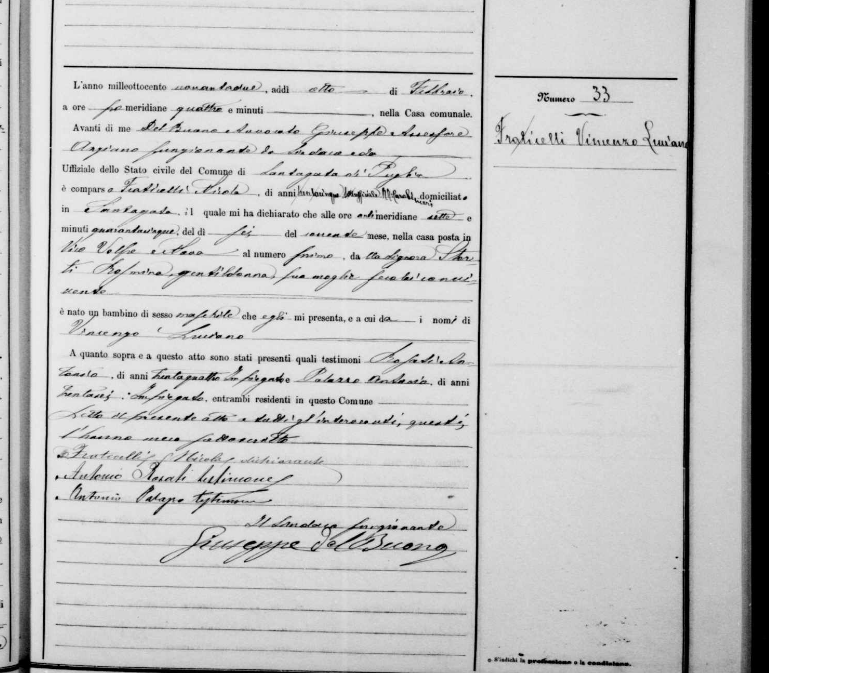 L'anno milleottocento novantadue, addì otto di Febbraio,
a ore pomeridiane quattro e minuti , nella Casa comunale.
Avanti di me Del Buono Avvocato Giuseppe Assessore
Anziano funzionante da Sindaco ed
Uffiziale dello Stato civile del Comune di Santagata di Puglia
è comparso Fraticelli Nicola, di anni domiciliato
in Santagata, il quale mi ha dichiarato che alle ore antimeridiane sette e
minuti quarantacinque, del dì sei del corrente mese, nella casa posta in
Vico Volpe e Nova al numero primo, da lla Signora Stor-
ti gentildonna, sua moglie seco lui convi-
vente
è nato un bambino di sesso maschile che egli mi presenta, e a cui dà i nomi di
Vincenzo Luciano
A quanto sopra e a questo atto sono stati presenti quali testimoni Rosati An-
tonio, di anni trentaquattro Impiegato e Palazzo Antonio, di anni
trentasei, Impiegato, entrambi residenti in questo Comune
Letto il presente atto a tutti gl'intervenuti, questi,
l'hanno meco sottoscritto
Fraticelli Nicola dichiarante
Antonio Rosati testimone
Antonio Palazzo testimone
Il Sindaco funzionante
Giuseppe Del Buono
Numero 33
Fraticelli Vincenzo Luciano
S'indichi la professione o la condizione.